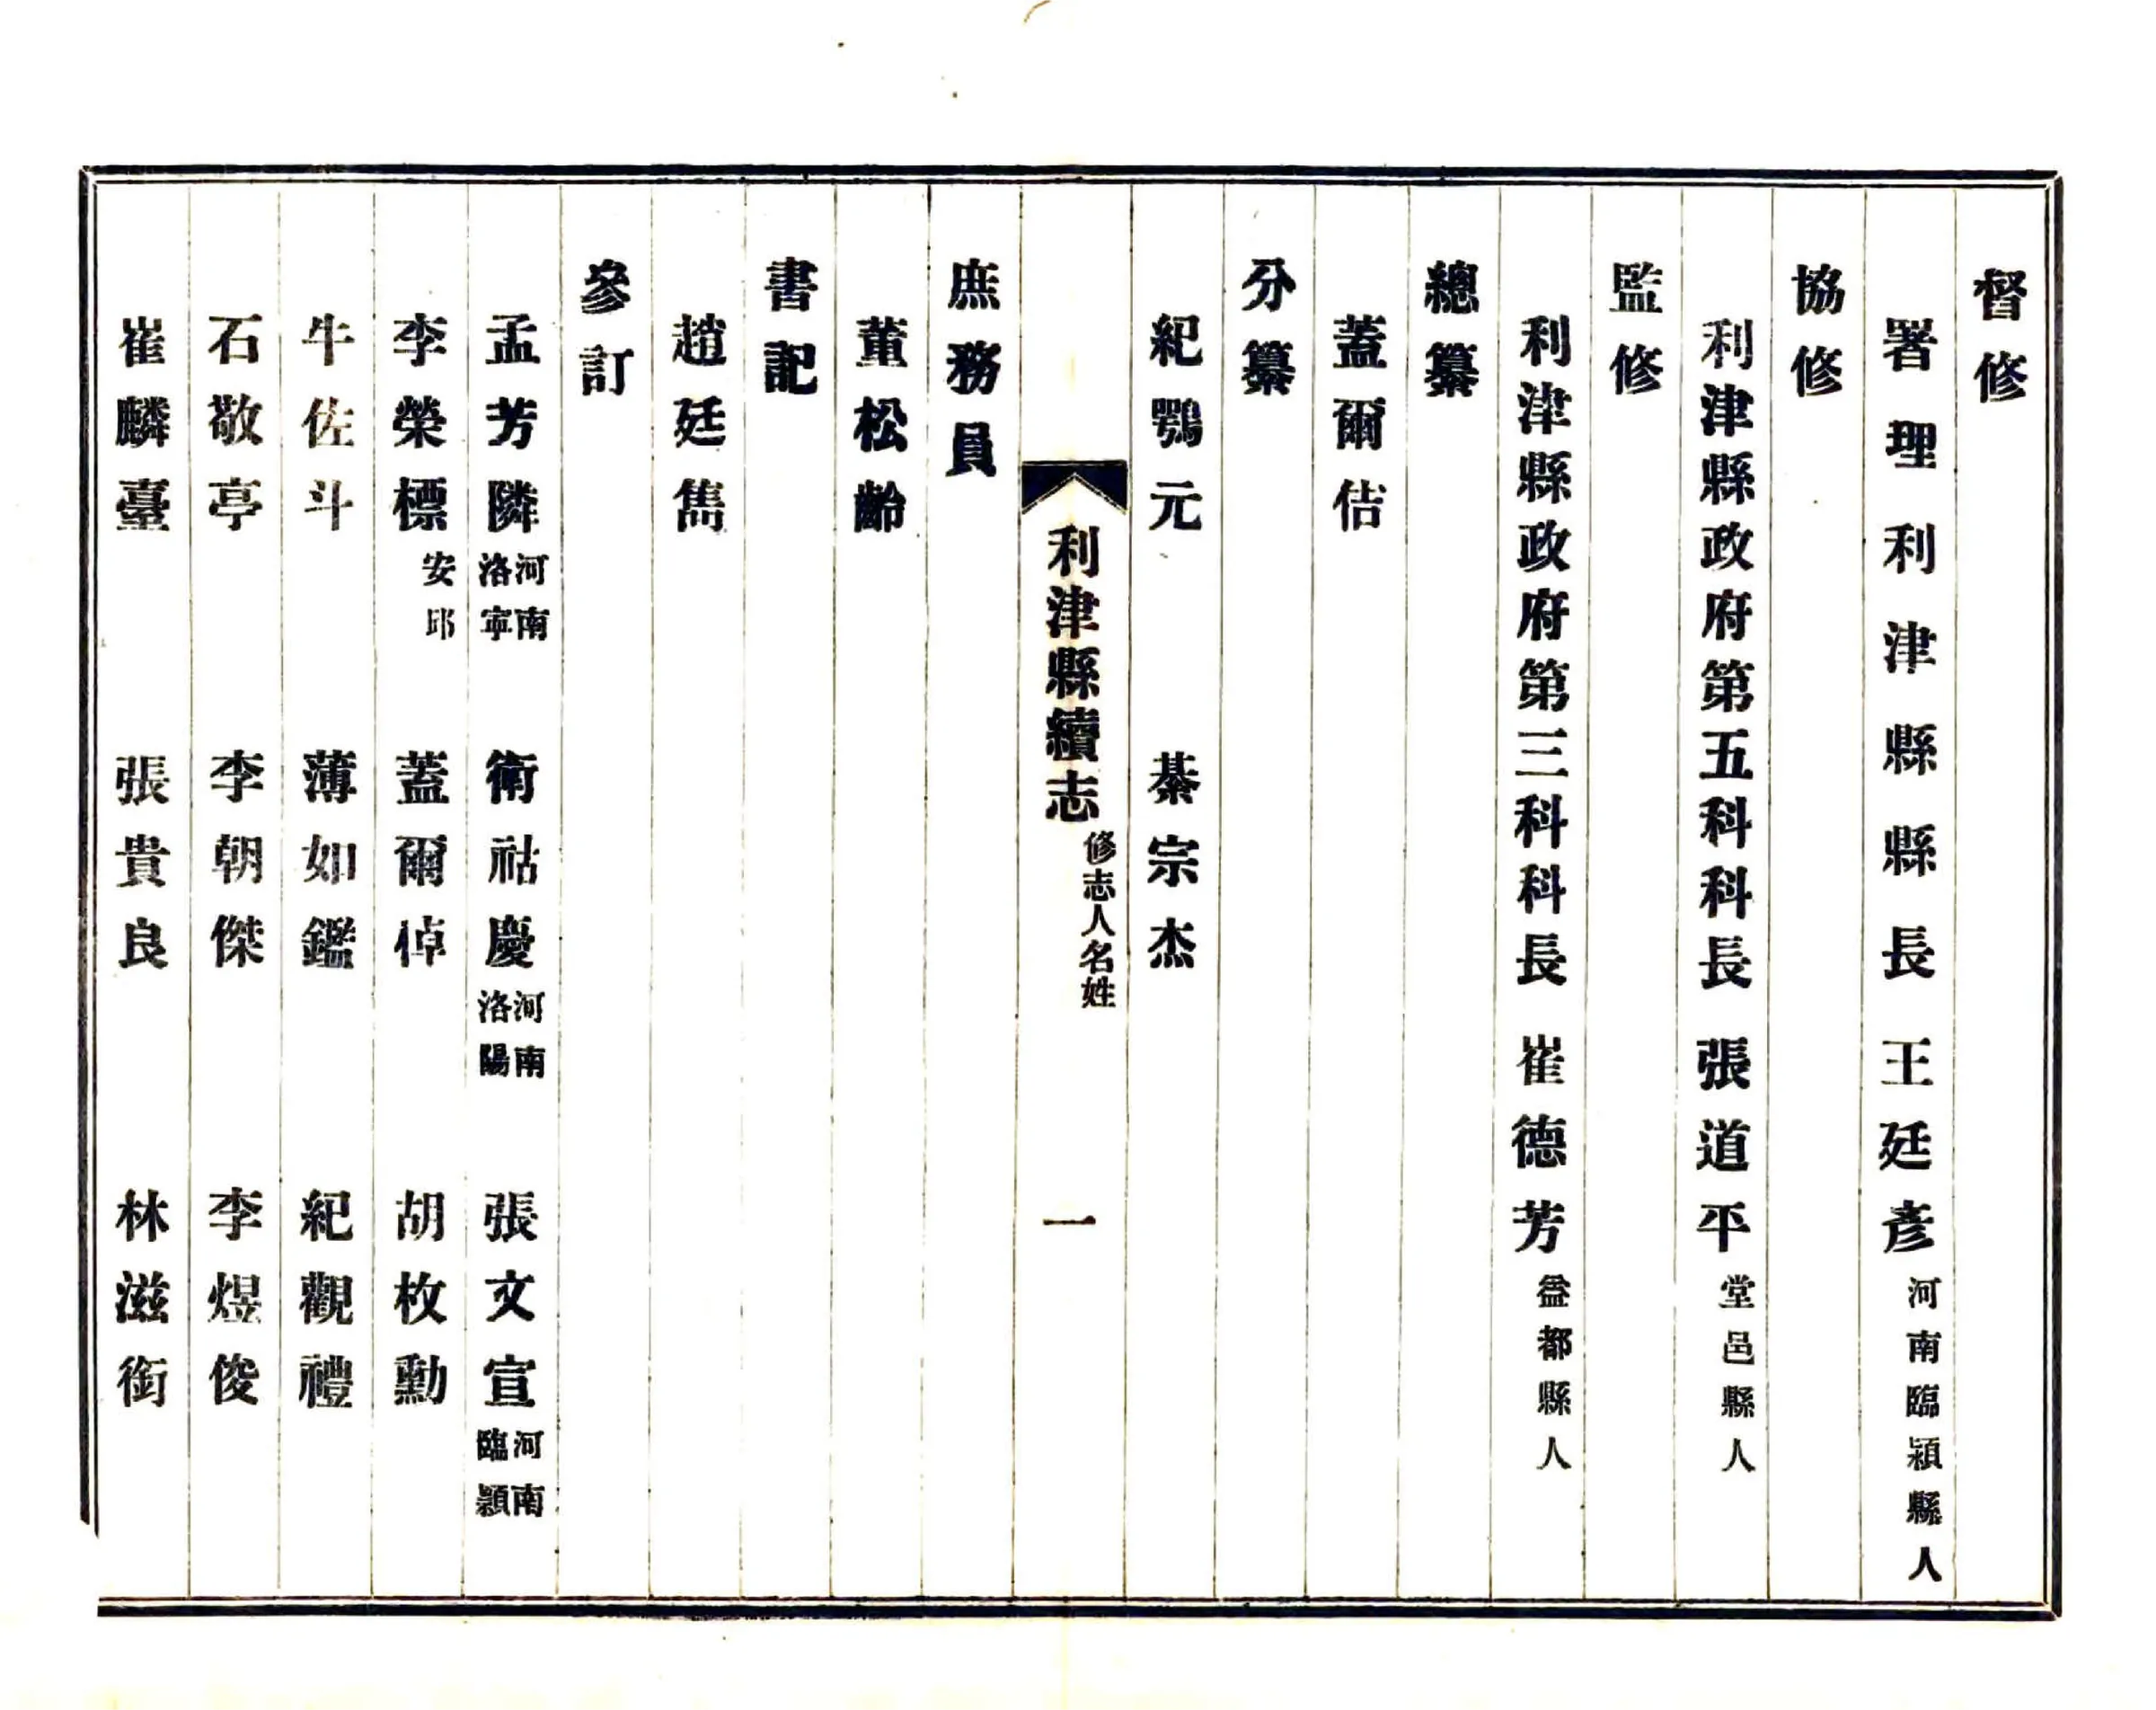 督修
署理利津縣縣長王廷彥河南臨潁縣人
協修
利津縣政府第五科科長張道平堂邑縣人
監修
利津縣政府第三科科長崔德芳益都縣人
總纂
蓋爾佶
分纂
紀鶚元 綦宗杰
利津縣續志修志人名姓 一
庶務員
董松齡
書記
趙廷雋
參訂
孟芳隣河南洛寧 衛祜慶河南洛陽 張文宣河南臨潁
李榮標安邱 蓋爾倬 胡枚勳
牛佐斗 薄如鑑 紀觀禮
石敬亭 李朝傑 李煜俊
崔麟臺 張貴良 林滋銜